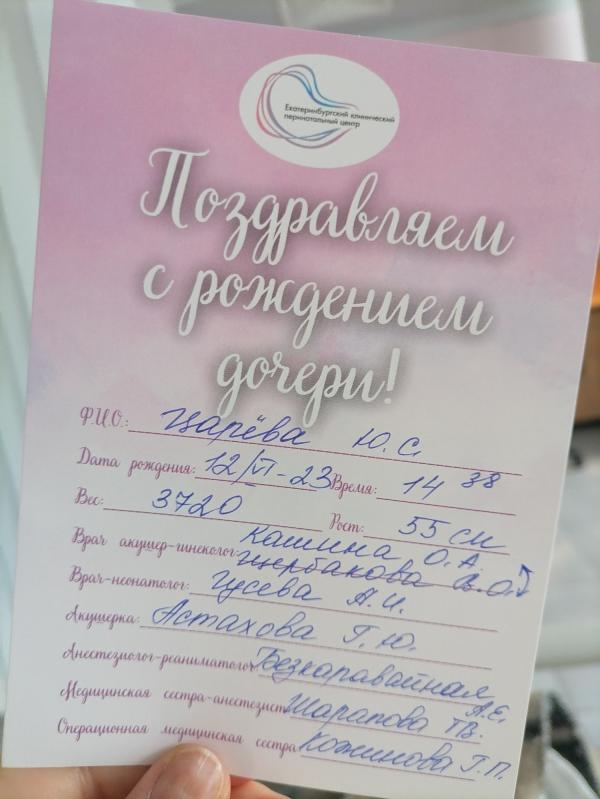 Екатеринбургский клинический
перинатальный центр
Поздравляем
с рождением
дочери!
Ф.И.О.: Царёва Ю.С.
Дата рождения: 12/VI-23 Время: 14 38
Вес: 3720 Рост: 55 см
Врач акушер-гинеколог: Кашина О.А.
Щербакова
Врач-неонатолог: Гусева А.И.
Акушерка: Астахова Г.Ю.
Анестезиолог-реаниматолог: Безкаравайная А.Е.
Медицинская сестра-анестезист: Шарапова Т.В.
Операционная медицинская сестра: Кожинова Г.П.